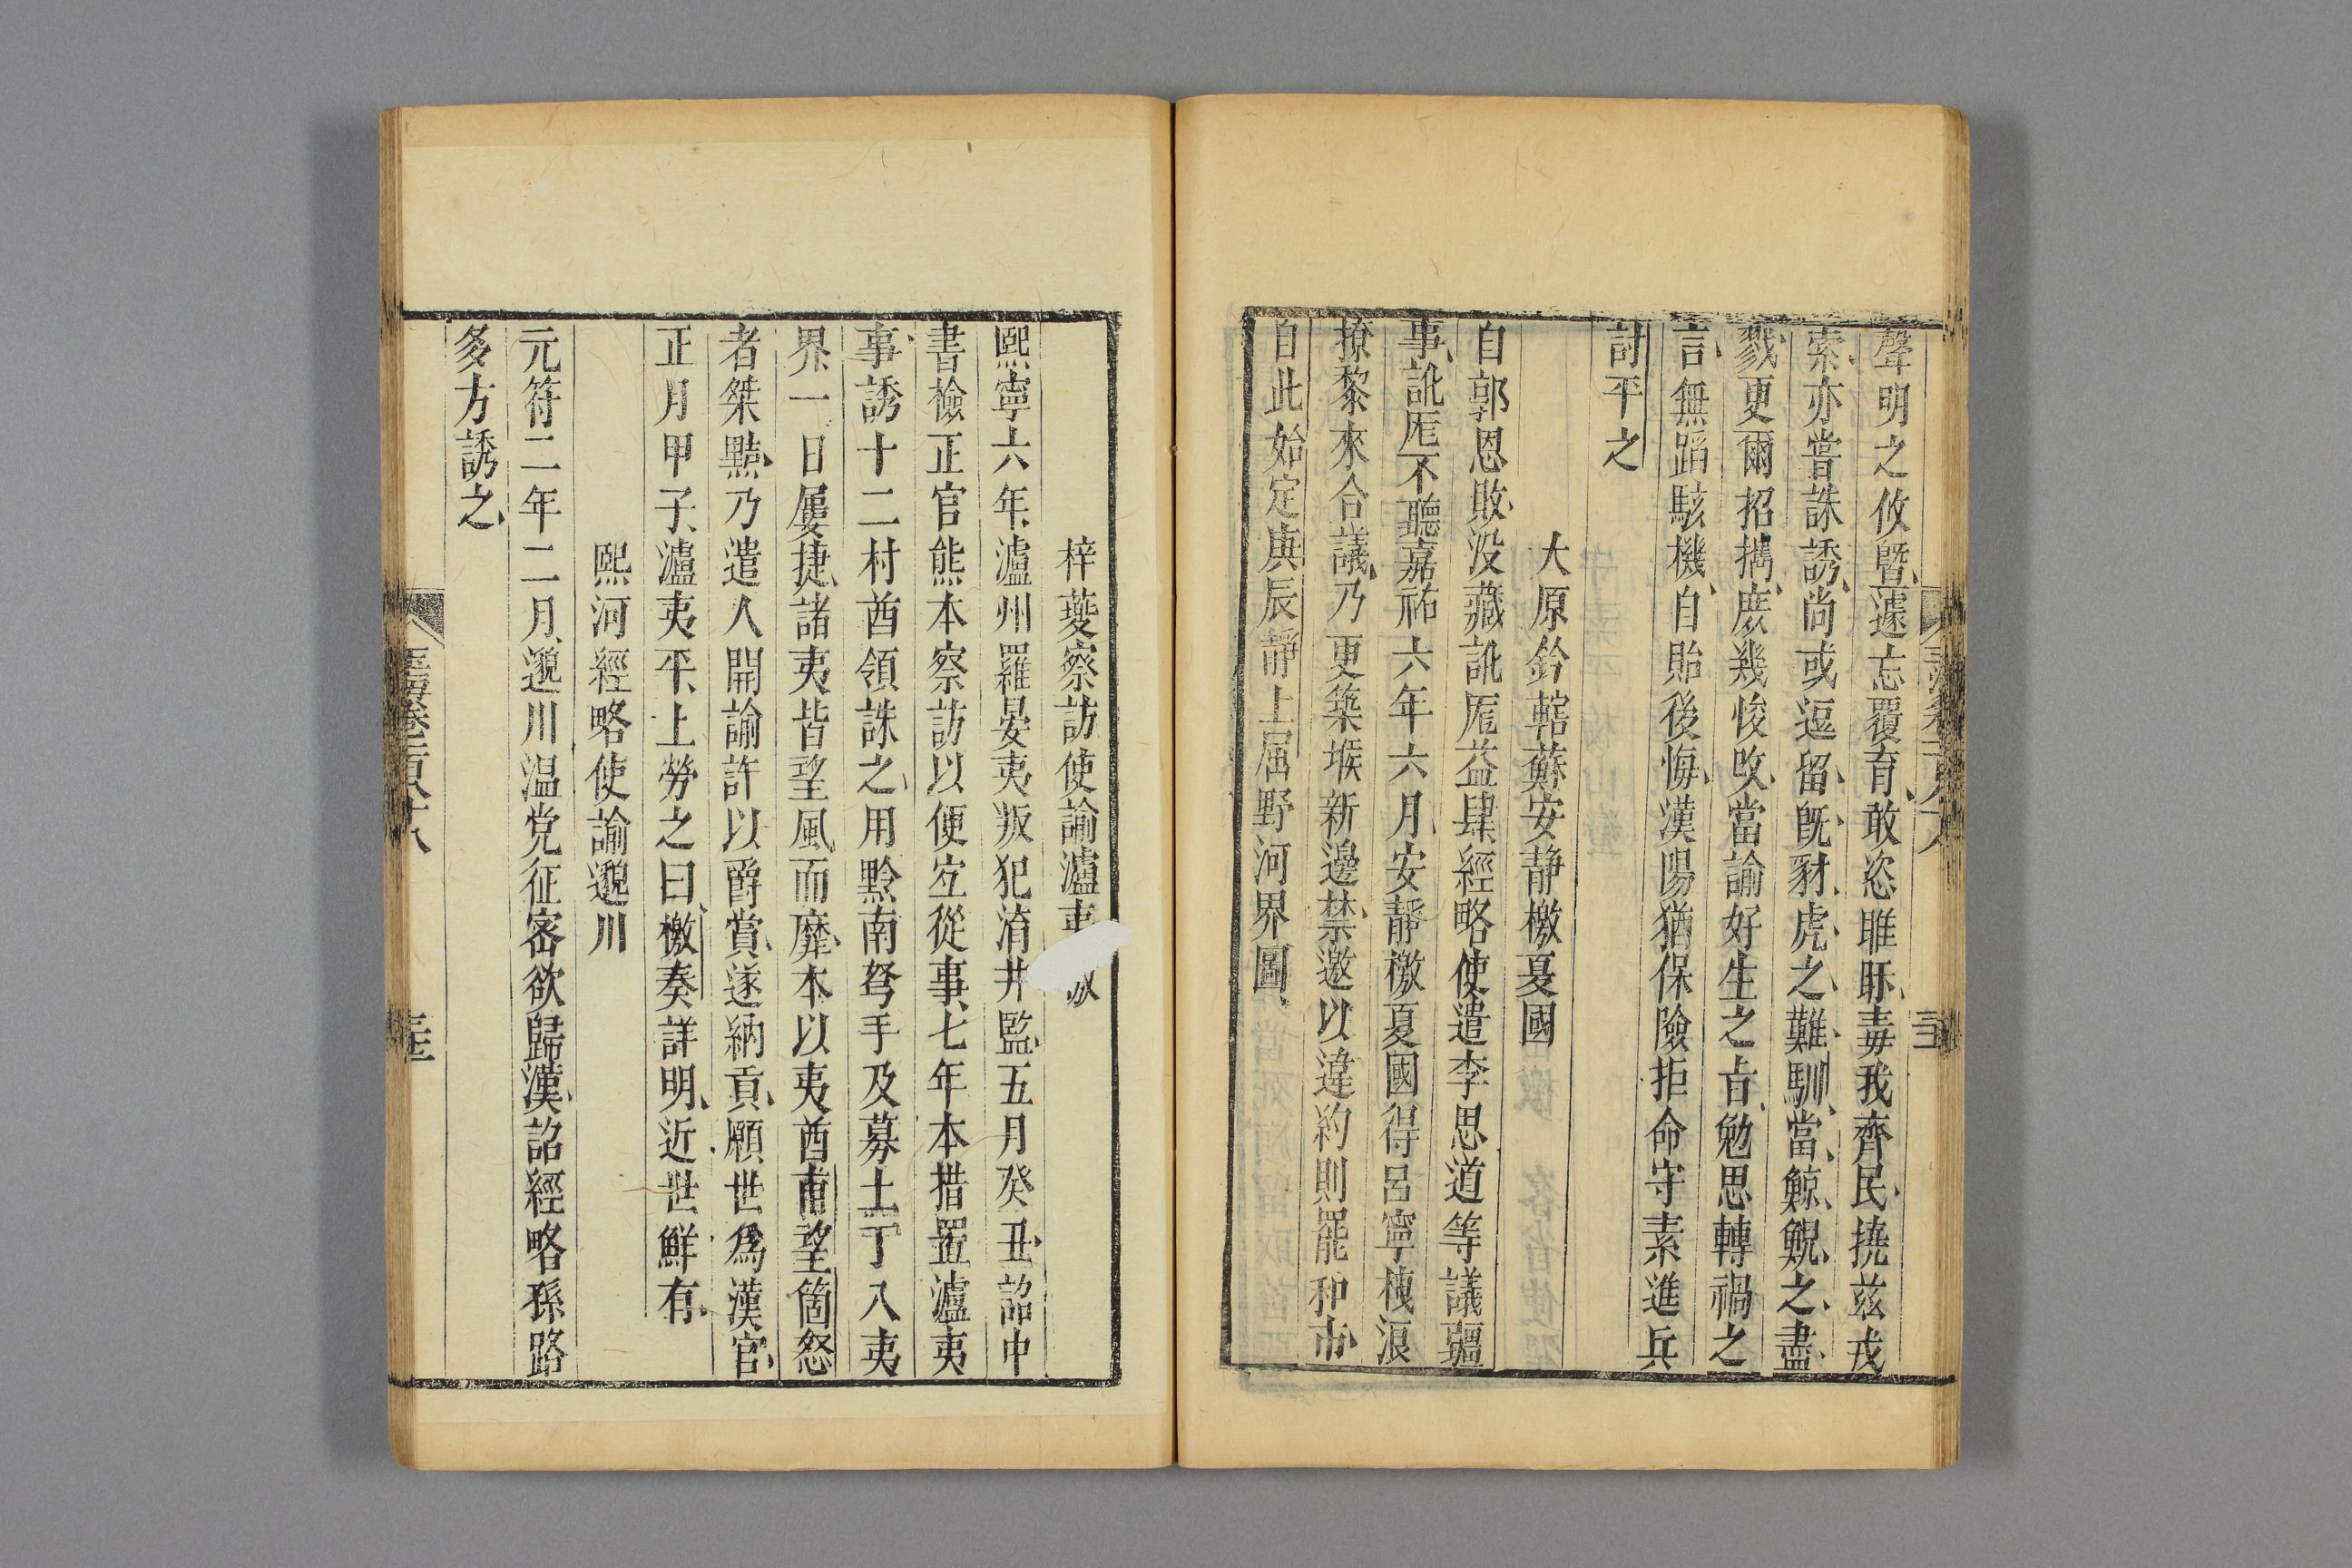 聲明之攸暨遽忘覆育敢恣睢眎毒我齊民撓兹戎
索亦嘗誅誘尚或逗留旣豺虎之難馴當鯨鯢之盡
戮更爾招攜庶幾悛攺當諭好生之㫖勉思轉禍之
言無蹈駭機自貽後悔漢陽猶保險拒命守素進兵
討平之
大原鈐轄蘇安静檄夏國
自郭恩敗没藏訛厖益肆經略使遣李思道等議疆
事訛厖不聽嘉祐六年六月安靜檄夏國得呂寧楝浪
撩黎來合議乃更築堠新邊禁邀以違約則罷和市
自此始定庚辰靜上屈野河界圖
梓夔察訪使諭瀘夷
熙寧六年瀘州羅晏夷叛犯淯井監五月癸丑詔中
書檢正官熊本察訪以便宐從事七年本措置瀘夷
事誘十二村酋領誅之用黔南弩手及募土丁入夷
界一日屢捷諸夷皆望風而靡本以夷酋甫望箇恕
者桀黠乃遣人開諭許以爵賞遂納貢願世爲漢官
正月甲子瀘夷平上勞之曰檄奏詳明近世鮮有
熙河經略使諭邈川
元符二年二月邈川温党征密欲歸漢詔經略孫路
多方誘之